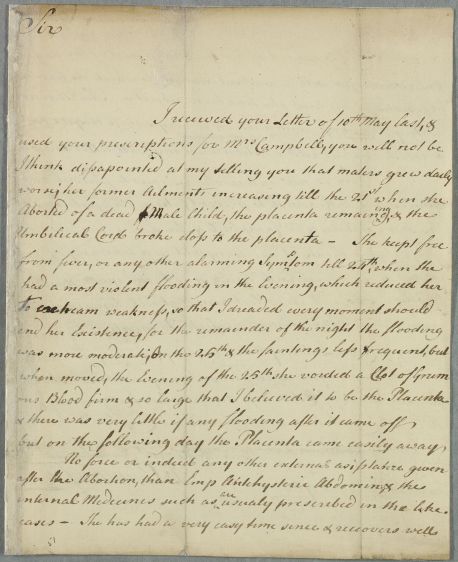 Sir
I received your Letter of 10th May last, &
used your prescriptions for Mrs Campbell, you will not be
I think dissapointed at my telling you that maters grew dayly
worse; her former Ailments increasing till the 21st when she
Aborted of a dead Male Child, the placenta remaining, & the
Umbelical Cord broke closs to the placenta — She kept free
from fever, or any other alarming Symptom till 24th, when she
had a most violent flooding in the Evening, which reduced her
to extream weakness, so that I dreaded every moment should
end her Existence, for the remainder of the night the flooding
was more moderate, On the 25th & the faintings less frequent, but
when moved, the Evening of the 25th she voided a Clot of Grum
ous Blood firm & so large that I believed it to be the Placenta
& there was very little if any flooding after it came off,
but on the following day the Placenta came easily away,
No force or indeed any other external assistance given
after the Abortion, than Emp Antehysteric Abdomini, & the
internal Medecines such as are usualy prescribed in the like
cases — She has had a very easy time since & recovers well